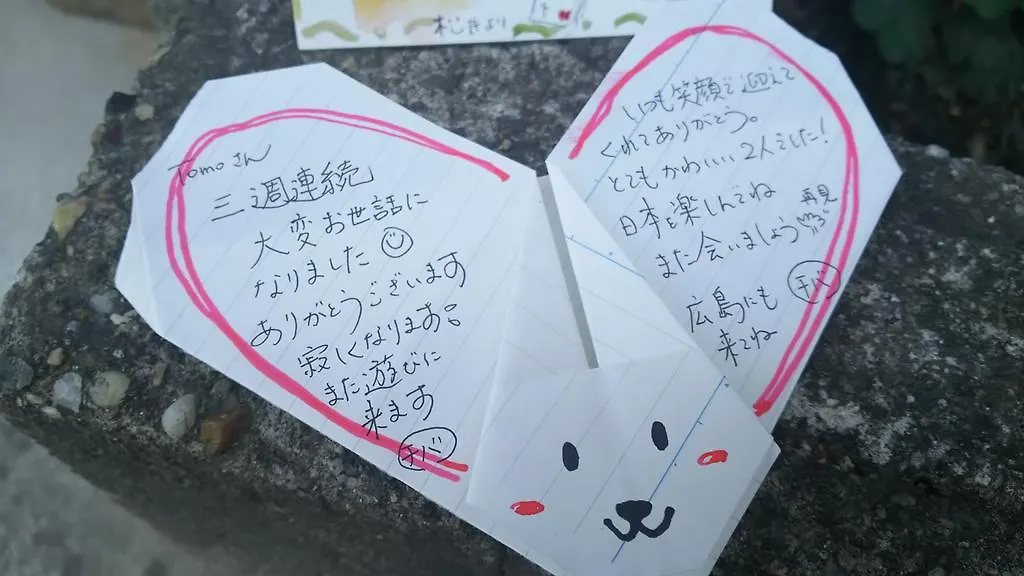 松本より
Tomoさん
三週連続
大変お世話に
なりました
ありがとうございます
寂しくなります。
また遊びに
来ます
チバ
いつも笑顔で迎えて
くれてありがとう。
とてもかわいい 2人でした!
日本を楽しんでね
再見
また会いましょう
チバ
広島にも
来てね